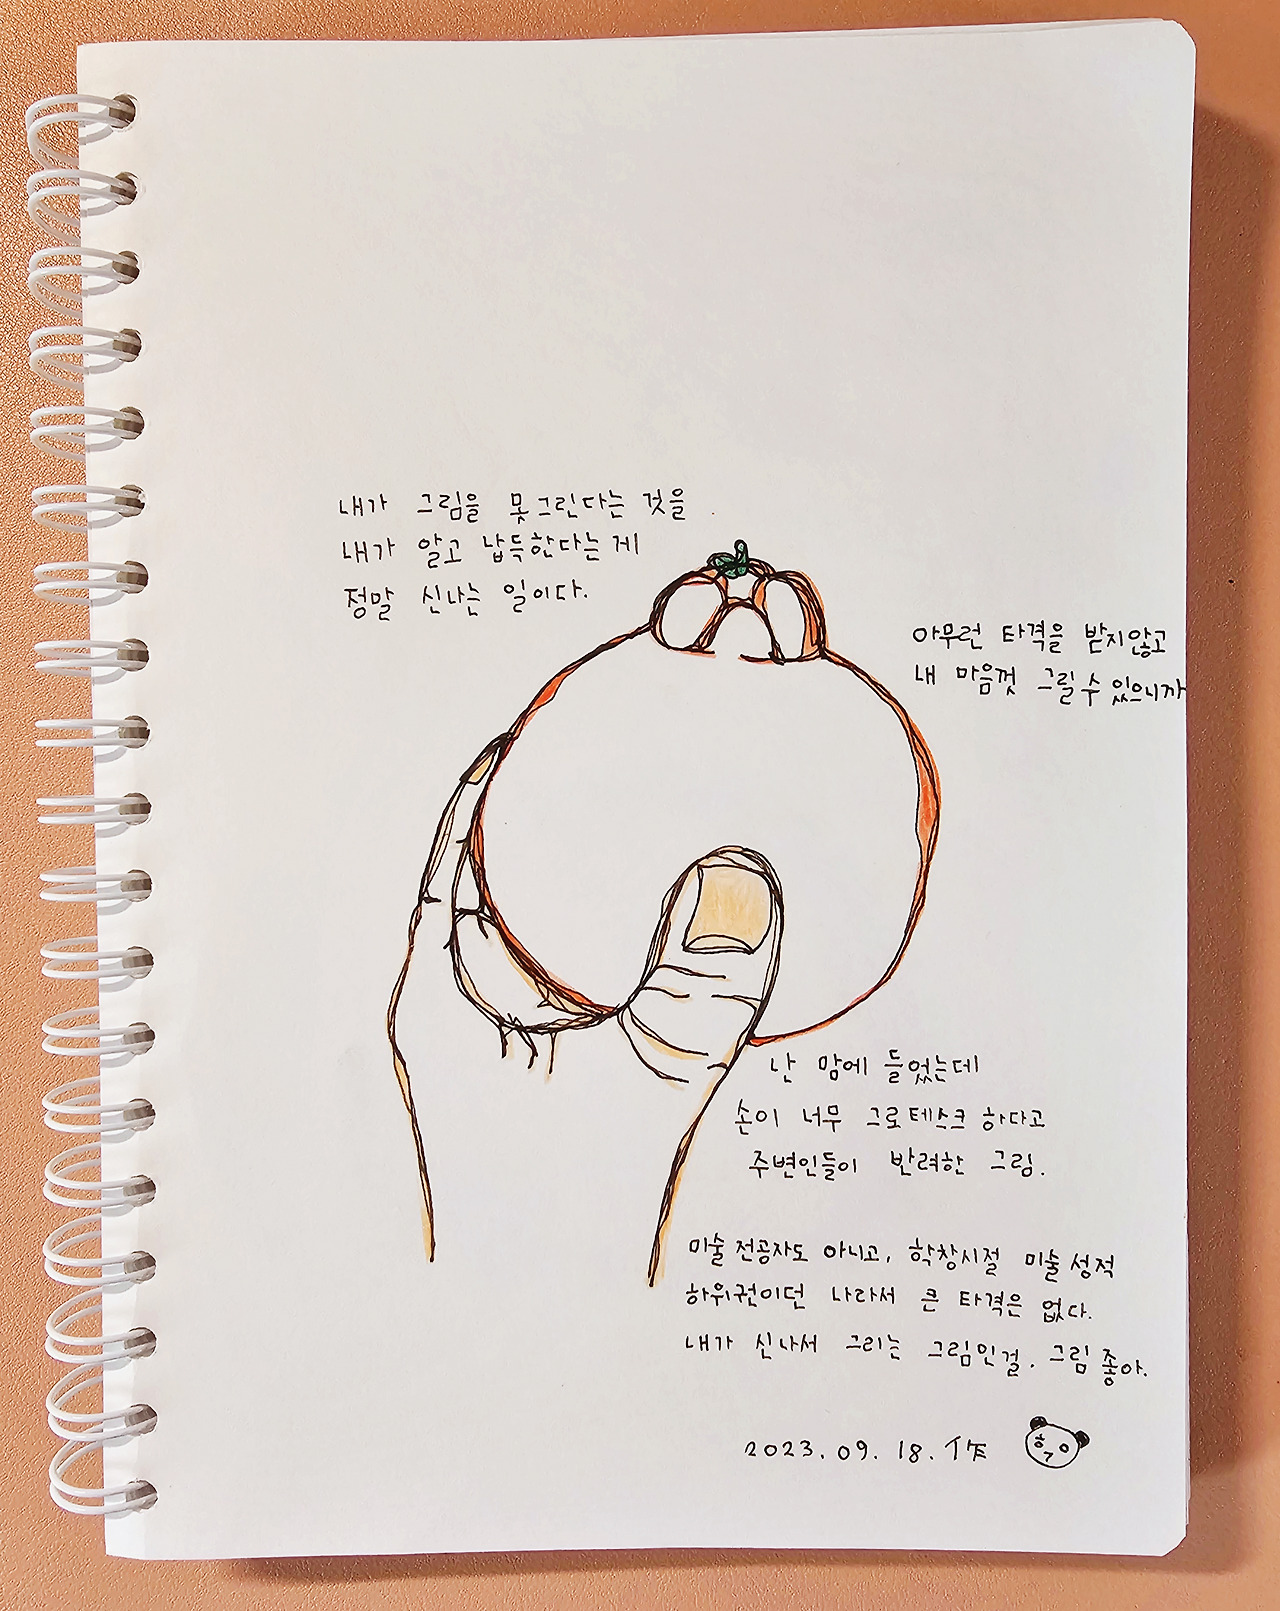 내가 그림을 못그린다는 것을
내가 알고 납득한다는게
정말 신나는 일이다.
아무런 타격을 받지않고
내 마음껏 그릴수있으니까
난 맘에 들었는데
손이 너무 그로테스크하다고
주변인들이 반려한 그림.
미술전공자도 아니고, 학창시절 미술성적
하위권이던 나라서 큰 타격은 없다.
내가 신나서 그리는 그림인걸. 그림좋아.
2023. 09. 18. 作